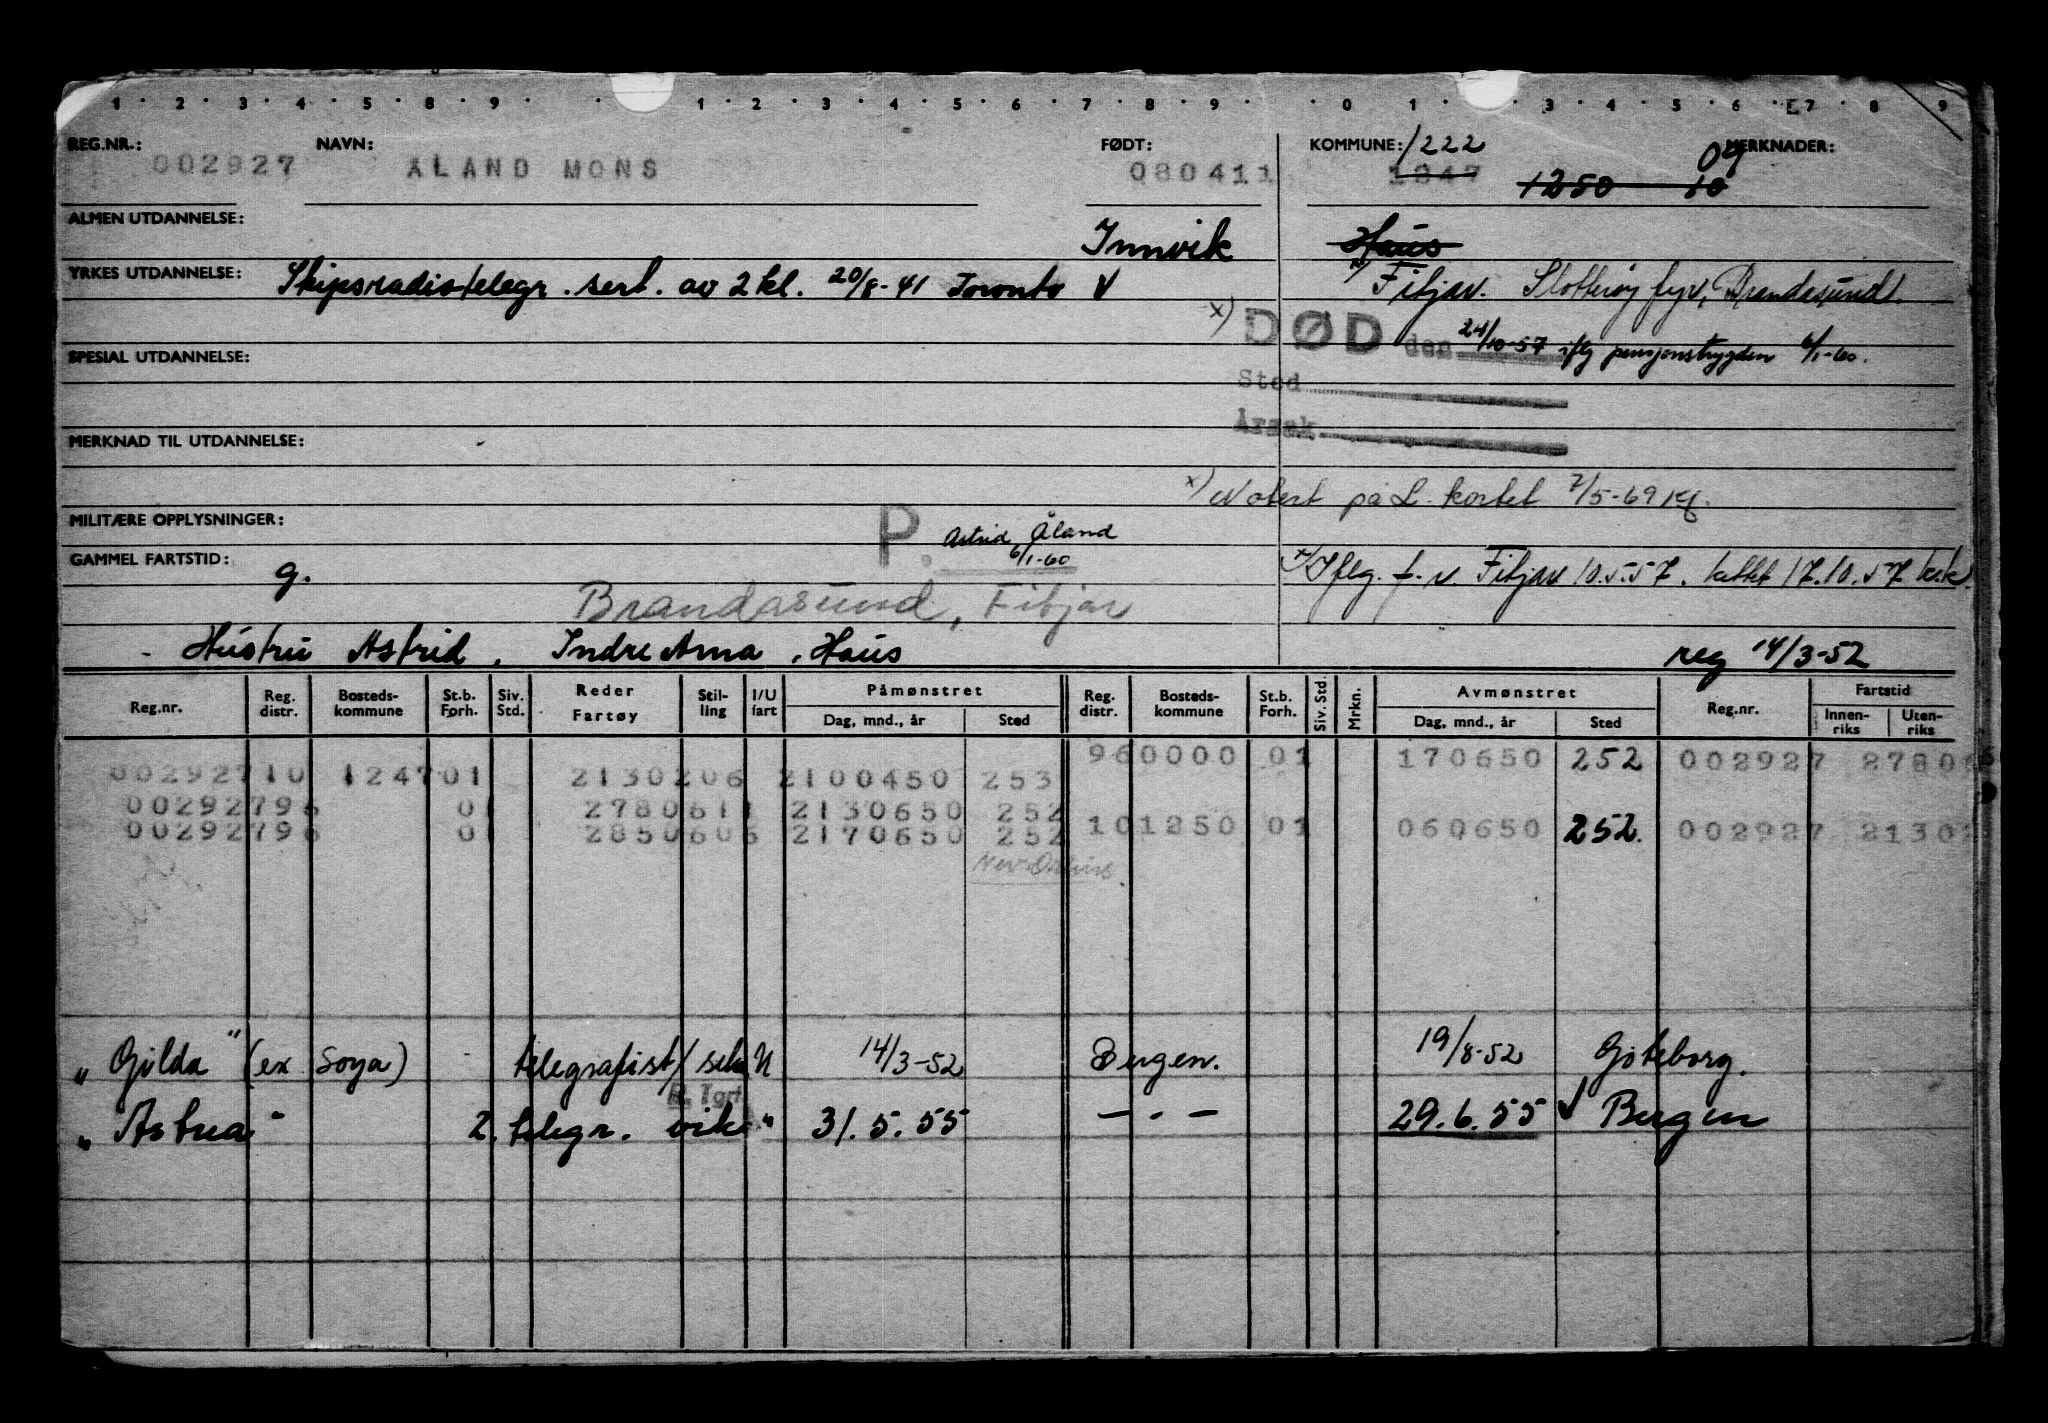 1 · 2 · 3 · 4 · 5 · 8 · 9 · · 1 · 2 · 3 · 4 · 5 · 6 · 7 · 8 · 9 · · 0 · 1 · · 3 · 4 · 5 · 6 · 7 · 8 · 9
REG.NR.: NAVN: FØDT: KOMMUNE: 1222 MERKNADER: 09
002927 ÅLAND MONS 080411 1247 1250 10
ALMEN UTDANNELSE:
Innvik Haus
YRKES UTDANNELSE: Skipsradiotelegr. sert. av 2 kl. 20/8-41 Toronto V
x) Fitjar. Slotterøy fyr, Brandasund.
x) DØD den 24/10-57 iflg pensjonstrygden 6/1-60.
SPESIAL UTDANNELSE:
Sted
Årsak
MERKNAD TIL UTDANNELSE:
x) Notert på L. kortet 7/5-69
MILITÆRE OPPLYSNINGER:
P. Astrid Åland
6/1-60
GAMMEL FARTSTID: g.
x) Iflg. f. r. Fitjar 10.5.57. tattet 17.10.57
Brandasund, Fitjar
- Hustru Astrid, Indre Arna, Haus reg 14/3-52
Reg.nr. Reg. distr. Bosteds-kommune St.b. Forh. Siv. Std. Reder Fartøy Stil-ling I/U fart Påmønstret Dag, mnd., år Sted Reg. distr. Bosteds-kommune St.b. Forh. Siv. Std. Mrkn. Avmønstret Dag, mnd., år Sted Reg.nr. Fartstid Innen-riks Uten-riks
960000 01 170650 252 002927 2780
00292710 124701 2130206 2100450 253
00292796 01 2780611 2130650 252
00292796 01 2850606 2170650 252 101250 01 060650 252. 002927 2130
New Orleans.
"Gilda" (ex Soya) telegrafist/ U 14/3-52 Bergen. 19/8-52 Göteborg.
B. Tort
"Astrea" 2. telegr. vik " 31.5.55 — · — 29.6.55 V Bergen